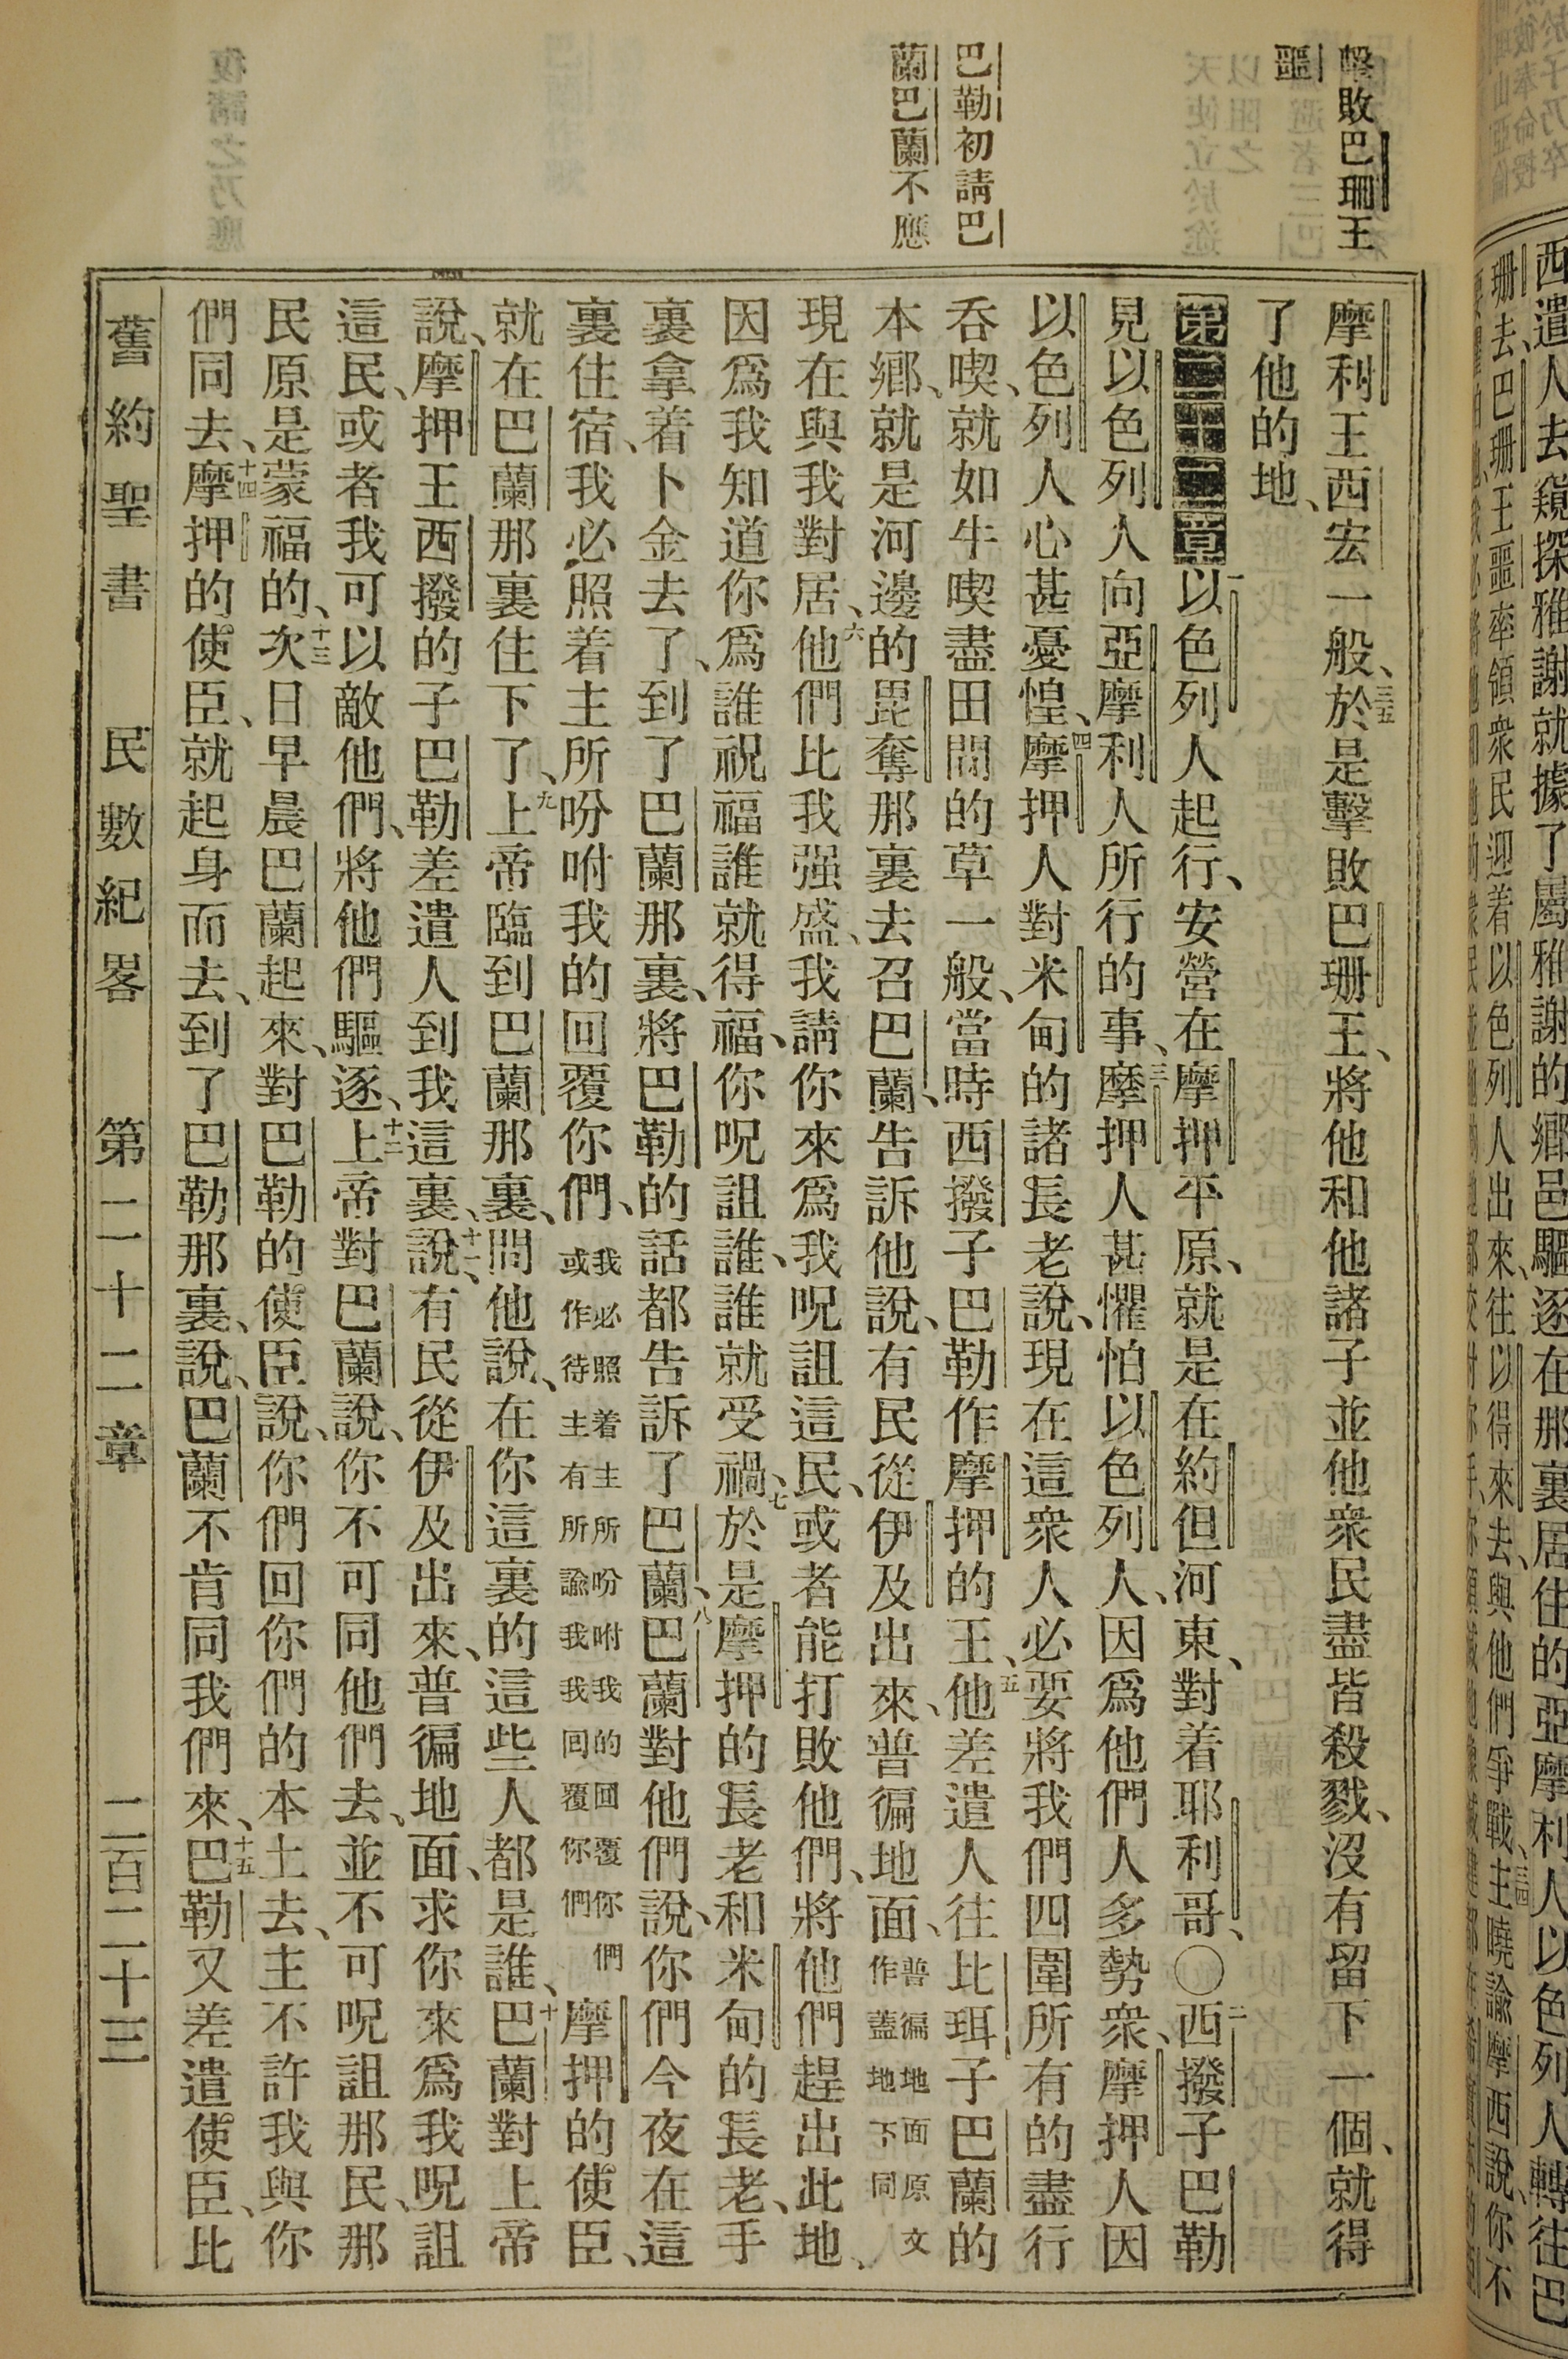 擊敗巴珊王
噩
巴勒初請巴
蘭巴蘭不應
摩利王西宏一般、三五於是擊敗巴珊王、將他和他諸子並他衆民盡皆殺戮、沒有留下一個、就得
了他的地、
第二十二章 一以色列人起行、安營在摩押平原、就是在約但河東、對着耶利哥、〇二西撥子巴勒
見以色列人向亞摩利人所行的事、三摩押人甚懼怕以色列人、因爲他們人多勢衆、摩押人因
以色列人心甚憂惶、四摩押人對米甸的諸長老說、現在這衆人必要將我們四圍所有的盡行
吞喫、就如牛喫盡田間的草一般、當時西撥子巴勒作摩押的王、五他差遣人往比珥子巴蘭的
本鄉、就是河邊的毘奪那裏去召巴蘭、告訴他說、有民從伊及出來、普徧地面、普徧地面原文作蓋地下同
現在與我對居、六他們比我强盛、我請你來爲我呪詛這民、或者能打敗他們、將他們趕出此地、
因爲我知道你爲誰祝福誰就得福、你呪詛誰、誰就受禍、七於是摩押的長老和米甸的長老、手
裏拿着卜金去了、到了巴蘭那裏、將巴勒的話都告訴了巴蘭、八巴蘭對他們說、你們今夜在這
裏住宿、我必照着主所吩咐我的回覆你們、我必照着主所吩咐我的回覆你們或作待主有所諭我我回覆你們摩押的使臣、
就在巴蘭那裏住下了、九上帝臨到巴蘭那裏、問他說、在你這裏的這些人都是誰、十巴蘭對上帝
說、摩押王西撥的子巴勒差遣人到我這裏、說、十一有民從伊及出來、普徧地面、求你來爲我呪詛
這民、或者我可以敵他們、將他們驅逐、十二上帝對巴蘭說、你不可同他們去、並不可呪詛那民、那
民原是蒙福的、十三次日早晨巴蘭起來、對巴勒的使臣說、你們回你們的本土去、主不許我與你
們同去、十四摩押的使臣、就起身而去、到了巴勒那裏、說、巴蘭不肯同我們來、十五巴勒又差遣使臣、比
舊約聖書 民數紀畧 第二十二章 二百二十三
西遣人去窺探雅謝就據了屬雅謝的鄉邑驅逐在那裏居住的亞摩利人以色列人轉往巴
珊去、巴珊王噩率領衆民迎着以色列人出來、往以得來去、與他們爭戰、三四主曉諭摩西說、你不